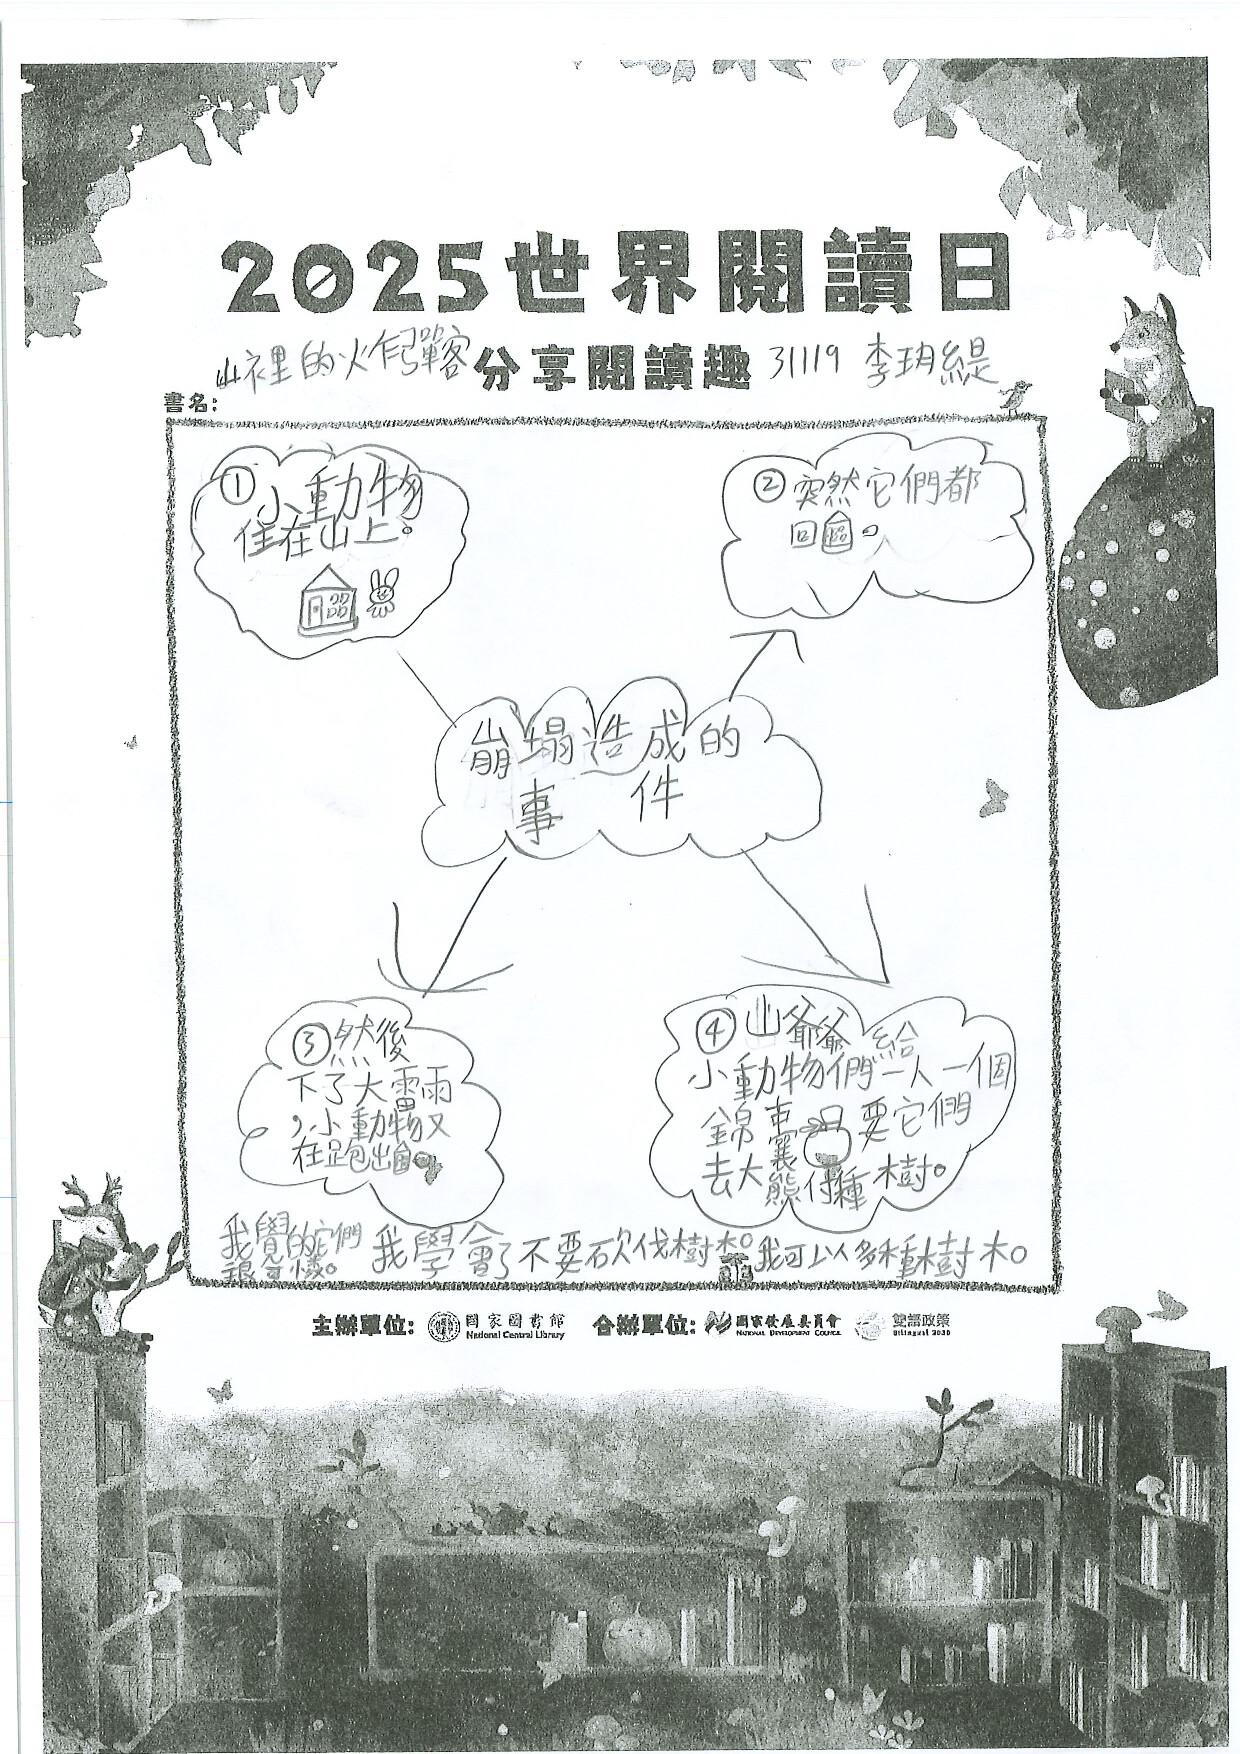 2025世界閱讀日
山裡的火炸彈客 分享閱讀趣 31119 李玥緹
書名:
①小動物
住在山上。
②突然它們都
回。
崩塌造成的
事件
③然後
下了大雷雨
，小動物又
在跑出。
④山爺爺給
小動物們一人一個
錦囊要它們
去大熊付種樹。
我覺的它們
很可憐。
我學會了不要砍伐樹木。我可以多種樹木。
主辦單位: 國家圖書館 National Central Library 合辦單位: 國家發展委員會 NATIONAL DEVELOPMENT COUNCIL 雙語政策 Bilingual 2030